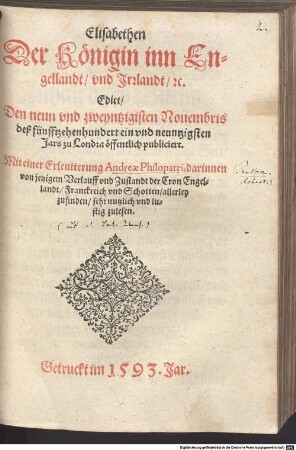 Elisabethen
Der Königin inn En-
gellandt/ vnd Irrlandt/ ꝛc.
Edict/
Den neun vnd zweyntzigisten Nouembris
deß fünfftzehenhundert ein vnd nenntzigsten
Jars zu Londra öffentlich publiciert.
Mit einer Erleutterung Andreæ Philopatri, darinnen
von jetzigem Verlauff vnd Zustandt der Cron Engel-
landt/ Franckreich vnd Schotten/ allerley
zufinden/ sehr nutzlich vnd lu-
stig zulesen.
Getruckt im 1593. Jar.